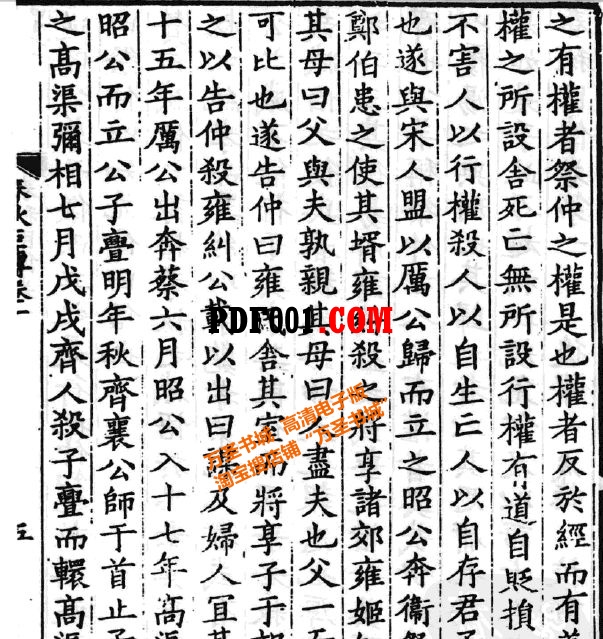 之有權者祭仲之權是也權者反於經而有
權之所設舍死亡無所設行權有道自貶損
不害人以行權殺人以自生亡人以自存君
也遂與宋人盟以厲公歸而立之昭公奔衞
鄭伯患之使其壻雍糾殺之將享諸郊雍姬
其母曰父與夫孰親其母曰人盡夫也父一
可比也遂告仲曰雍氏舍其室而將享子于
之以告仲殺雍糾公載以出曰謀及婦人宜其
十五年厲公出奔蔡六月昭公入十七年高渠
昭公而立公子亹明年秋齊襄公師于首止子
之高渠彌相七月戊戌齊人殺子亹而轘高渠
五
PDF001.COM
万圣书城 高清电子版
淘宝搜店铺“万圣书城”